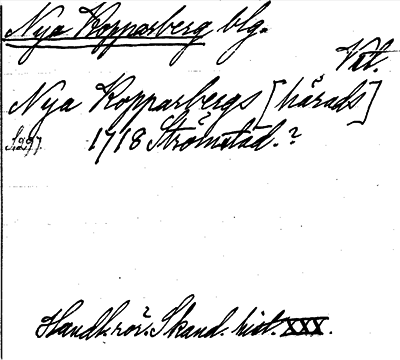 Nya Kopparberg blg.
Vkt.
Nya Kopparbergs [härads]
S.297. 1718 Strömstad.?
Handl. rör. Skand. hist. XXX.